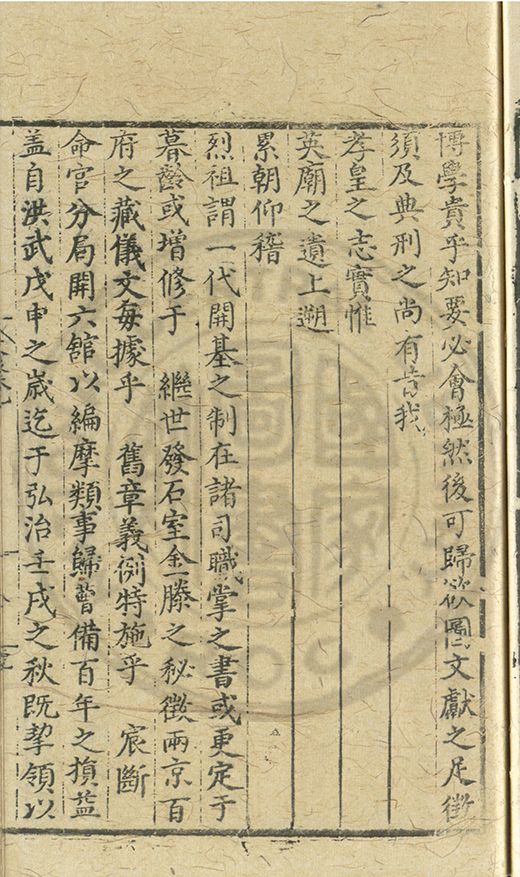 博學貴乎知要必會極然後可歸欲圖文獻之足徵
須及典刑之尚有昔我
孝皇之志實惟
英廟之遺上遡
累朝仰稽
烈祖謂一代開基之制在諸司職掌之書或更定于
暮齡或增修于　繼世發石室金縢之秘徵兩京百
府之藏儀文每據乎　舊章義例特施乎　宸斷
命官分局開六舘以編摩類事歸曹備百年之損益
盖自洪武戊申之歲迄于弘治壬戌之秋既挈領以